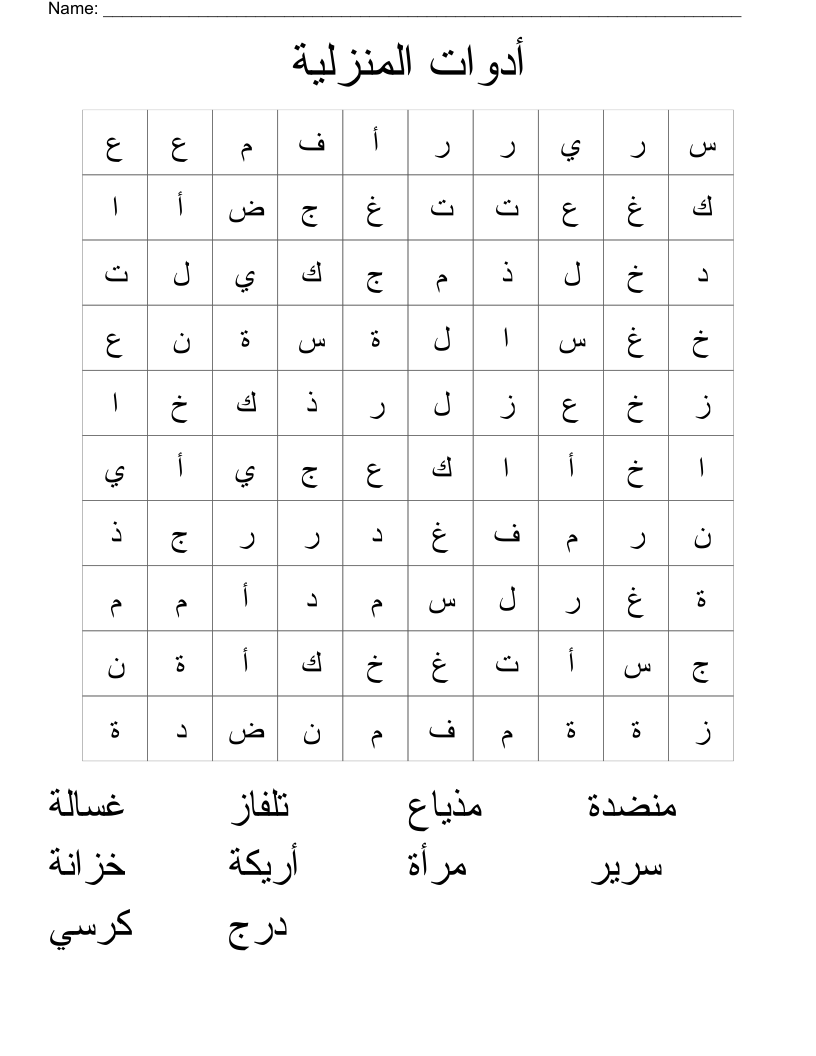 Name:
أدوات المنزلية
س ر ي ر ر أ ف م ع ع
ك غ ع ت ت غ ج ض أ ا
د خ ل ذ م ج ك ي ل ت
خ غ س ا ل ة س ة ن ع
ز خ ع ز ل ر ذ ك خ ا
ا خ أ ا ك ع ج ي أ ي
ن ر م ف غ د ر ر ج ذ
ة غ ر ل س م د أ م م
ج س أ ت غ خ ك أ ة ن
ز ة ة م ف م ن ض د ة
منضدة مذياع تلفاز غسالة
سرير مرأة أريكة خزانة
درج كرسي